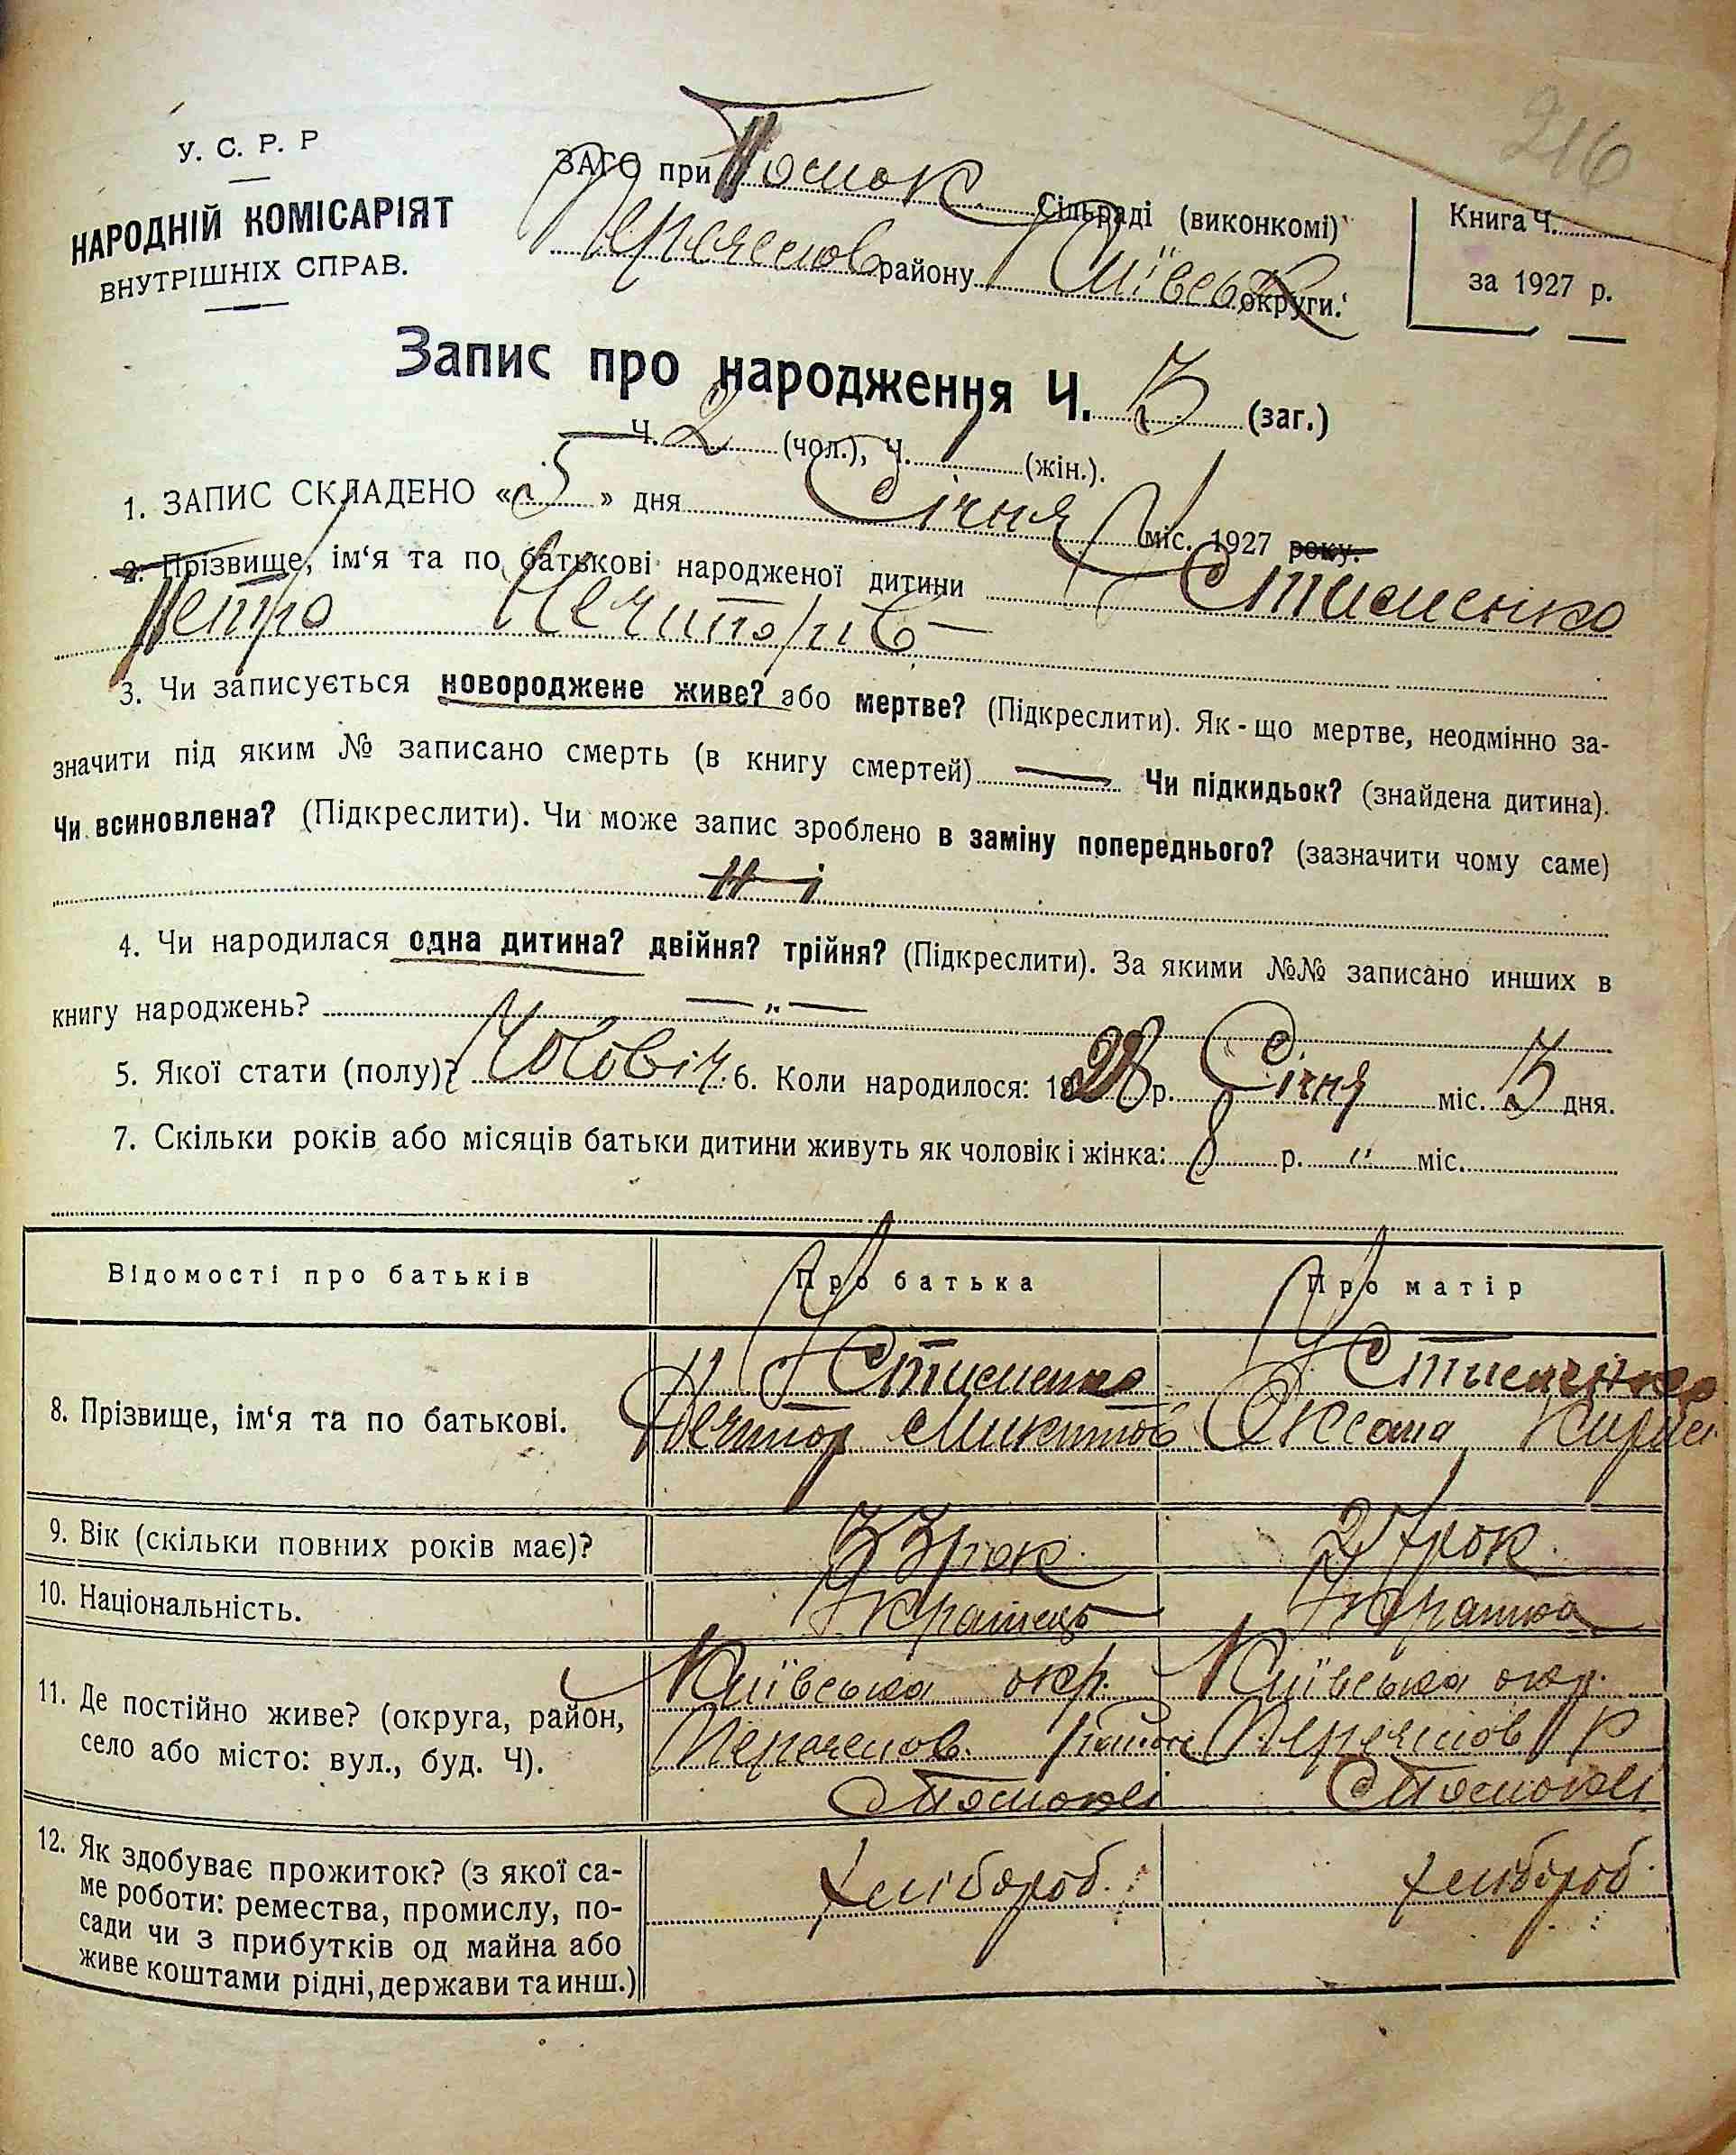 216
У. С. Р. Р
НАРОДНІЙ КОМІСАРІЯТ
ВНУТРІШНІХ СПРАВ.
ЗАГС при Помок Сільраді (виконкомі)
району округи.
Книга Ч.
за 1927 р.
Запис про народження Ч. 3 (заг.)
Ч. 2 (чол.), Ч. 1 (жін.).
1. ЗАПИС СКЛАДЕНО «5» дня Січня міс. 1927 року.
2. Прізвище, ім'я та по батькові народженої дитини
Петро Нечипорів
3. Чи записується новороджене живе? або мертве? (Підкреслити). Як-що мертве, неодмінно за-
значити під яким № записано смерть (в книгу смертей) — Чи підкидьок? (знайдена дитина).
Чи всиновлена? (Підкреслити). Чи може запис зроблено в заміну попереднього? (зазначити чому саме)
Ні
4. Чи народилася одна дитина? двійня? трійня? (Підкреслити). За якими №№ записано инших в
книгу народжень? — " —
5. Якої стати (полу)? Чоловіч 6. Коли народилося: 1928 р. Січня міс. 3 дня.
7. Скільки років або місяців батьки дитини живуть як чоловік і жінка: 8 р. " міс.
Відомості про батьків Про батька Про матір
8. Прізвище, ім'я та по батькові.
Нечипор Микитов Оксана
9. Вік (скільки повних років має)? 33 рок. 27 рок.
10. Національність. Українець Українка
11. Де постійно живе? (округа, район,
село або місто: вул., буд. Ч).
Київська окр. Київська окр.
12. Як здобуває прожиток? (з якої са-
ме роботи: ремества, промислу, по-
сади чи з прибутків од майна або
живе коштами рідні, держави та инш.)
хлібороб. хлібороб.